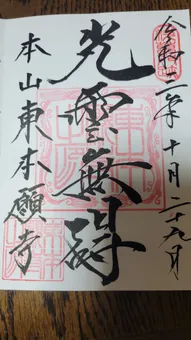 令和二年十月二十九日
光雲無碍
本山東本願寺